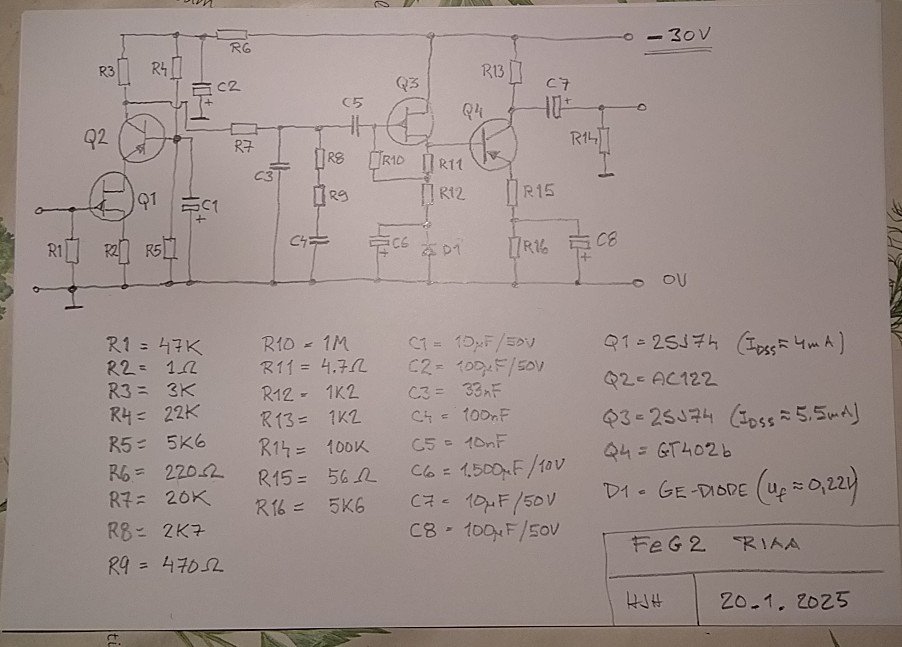 -30V
R6
R3
R4
C2
+
Q3
R13
C7
+
Q4
C5
Q2
R7
R14
C3
R8
R10
R11
Q1
C1
+
R9
R12
R15
R1
R2
R5
C4
C6
+
D1
R16
C8
+
0V
R1 = 47K
R2 = 1Ω
R3 = 3K
R4 = 22K
R5 = 5K6
R6 = 220Ω
R7 = 20K
R8 = 2K7
R9 = 470Ω
R10 = 1M
R11 = 4.7Ω
R12 = 1K2
R13 = 1K2
R14 = 100K
R15 = 56Ω
R16 = 5K6
C1 = 10μF/50V
C2 = 100μF/50V
C3 = 33nF
C4 = 100nF
C5 = 10nF
C6 = 1.500μF/10V
C7 = 10μF/50V
C8 = 100μF/50V
Q1 = 2SJ74 (IDSS ≈ 4mA)
Q2 = AC122
Q3 = 2SJ74 (IDSS ≈ 5.5mA)
Q4 = GT402b
D1 = GE-DIODE (Uf ≈ 0,22V)
FeG2 RIAA
HJH
20.1.2025